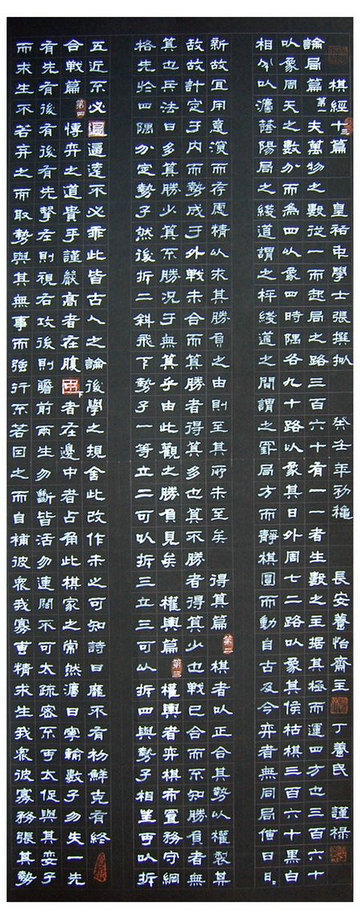 棋經十三篇 皇祐中學士張擬撰 年初 長安養怡齋主 丁養民 謹祿
論局篇第一 夫萬物之數從一而起局之路三百六十有一一者生數之主據其極而運四方也三百六十
以象周天之數分而為四以象四時隅各九十路以象其日外周七二路以象其候枯棋三百六十黑白
相半以法陰陽局之綫道謂之枰綫道之間謂之罫局方而靜棋圓而動自古及今弈者無同局傳曰日日
新故宜用意深而存慮精以求其勝負之由則至其所未至矣 得算篇第二 棋者以正合其勢以權制其
敵故計定于內而勢成于外戰未合而算勝者得算多也算不勝者得算少也戰已合而不知勝負者無
算也兵法曰多算勝少算不勝況于無算乎由此觀之勝負見矣 權輿篇第三 權輿者弈棋布置務守綱
格先於四隅分定勢子然後拆二斜飛下勢子一等立二可以拆三立三可以拆四與勢子相望可以拆
五近不必遠不必乖此皆古人之論後學之規舍此改作未必可知詩曰靡不有初鮮克有終
合戰篇第四 博弈之道貴乎謹嚴高者在腹中下者在邊中者占角此棋家之常然法曰寧輸數子勿失一先
有先有後有後有先擊左則視右攻後則瞻前兩生勿斷皆活勿連闊不可太疏密不可太促與其戀子
而求生不若棄之而取勢與其無事而強行不若因之而自補彼衆我寡生我衆彼寡務張其勢